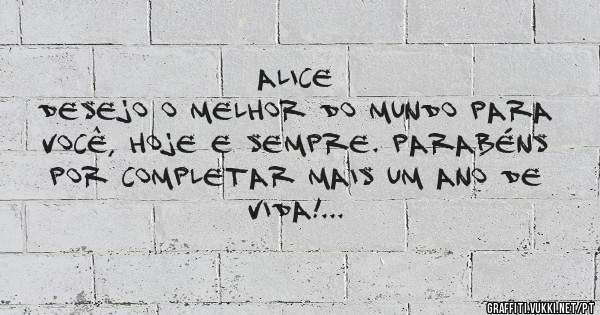 ALICE
DESEJO O MELHOR DO MUNDO PARA
VOCÊ, HOJE E SEMPRE. PARABÉNS
POR COMPLETAR MAIS UM ANO DE
VIDA!...
GRAFFITI.VUKKI.NET/PT